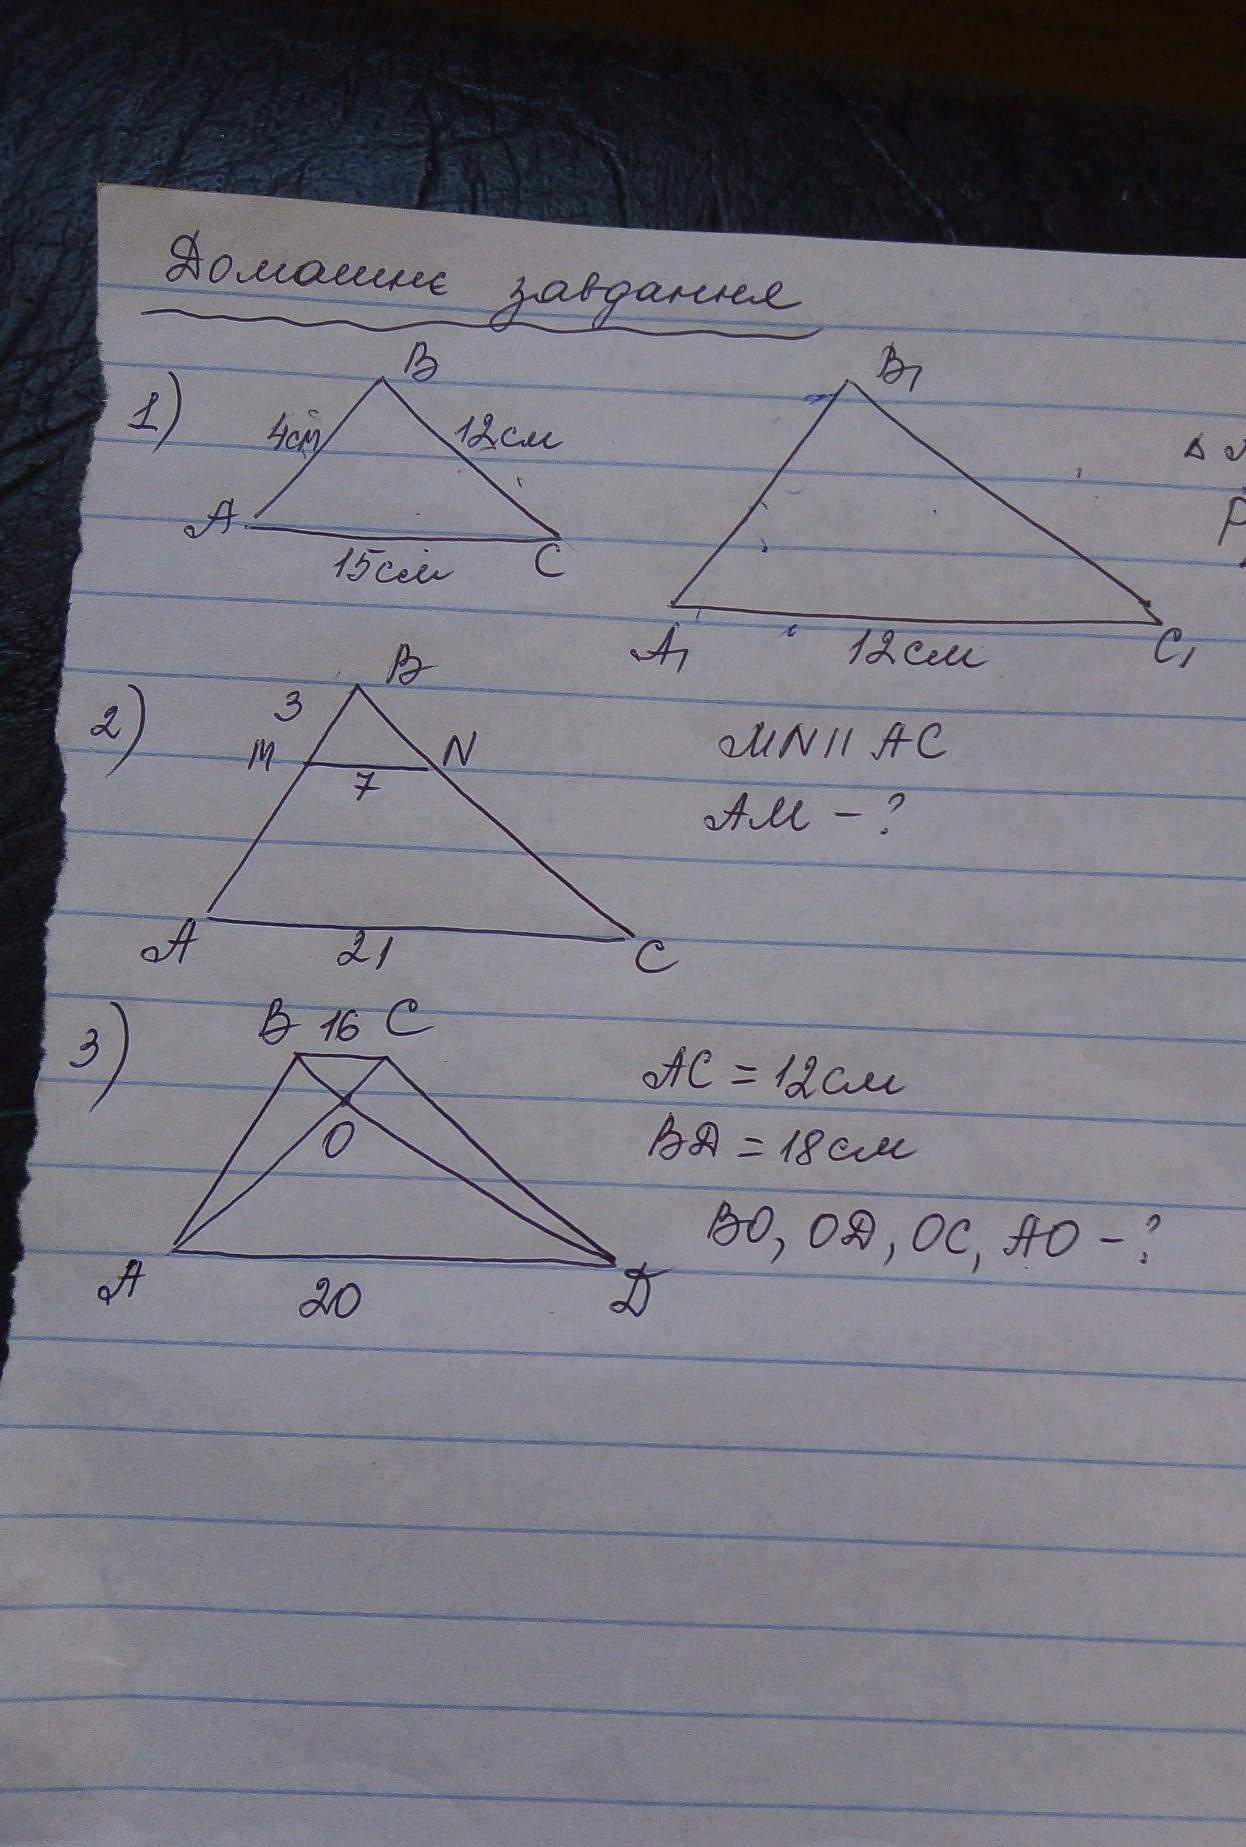 Домашнє завдання
1)
B
4см
12см
A
15см
C
B₁
A₁
12см
C₁
Δ
P
2)
B
3
M
N
7
A
21
C
MN || AC
AM - ?
3)
B 16 C
O
A
20
D
AC = 12см
BD = 18см
BO, OD, OC, AO - ?